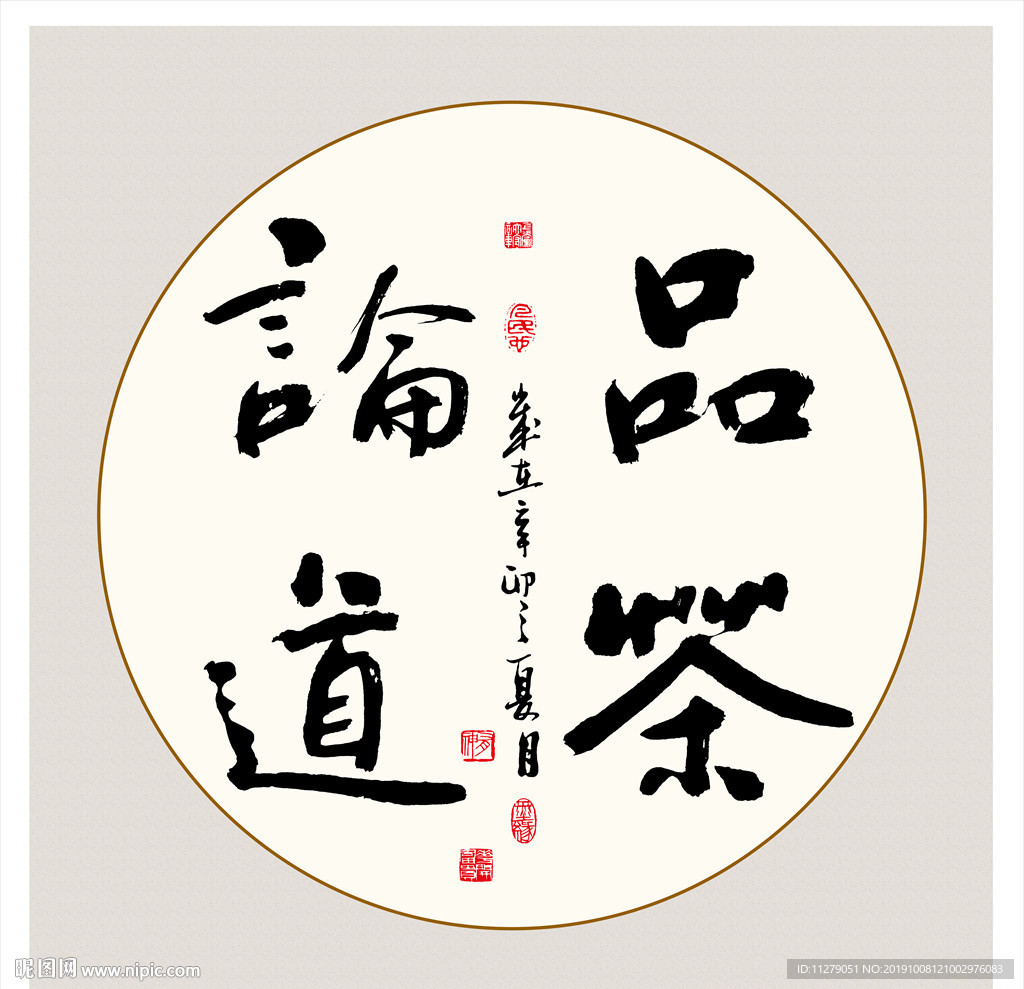 品茶
論道
歲在辛卯之夏月
昵图网 www.nipic.com
ID:11279051 NO:20191008121002976083